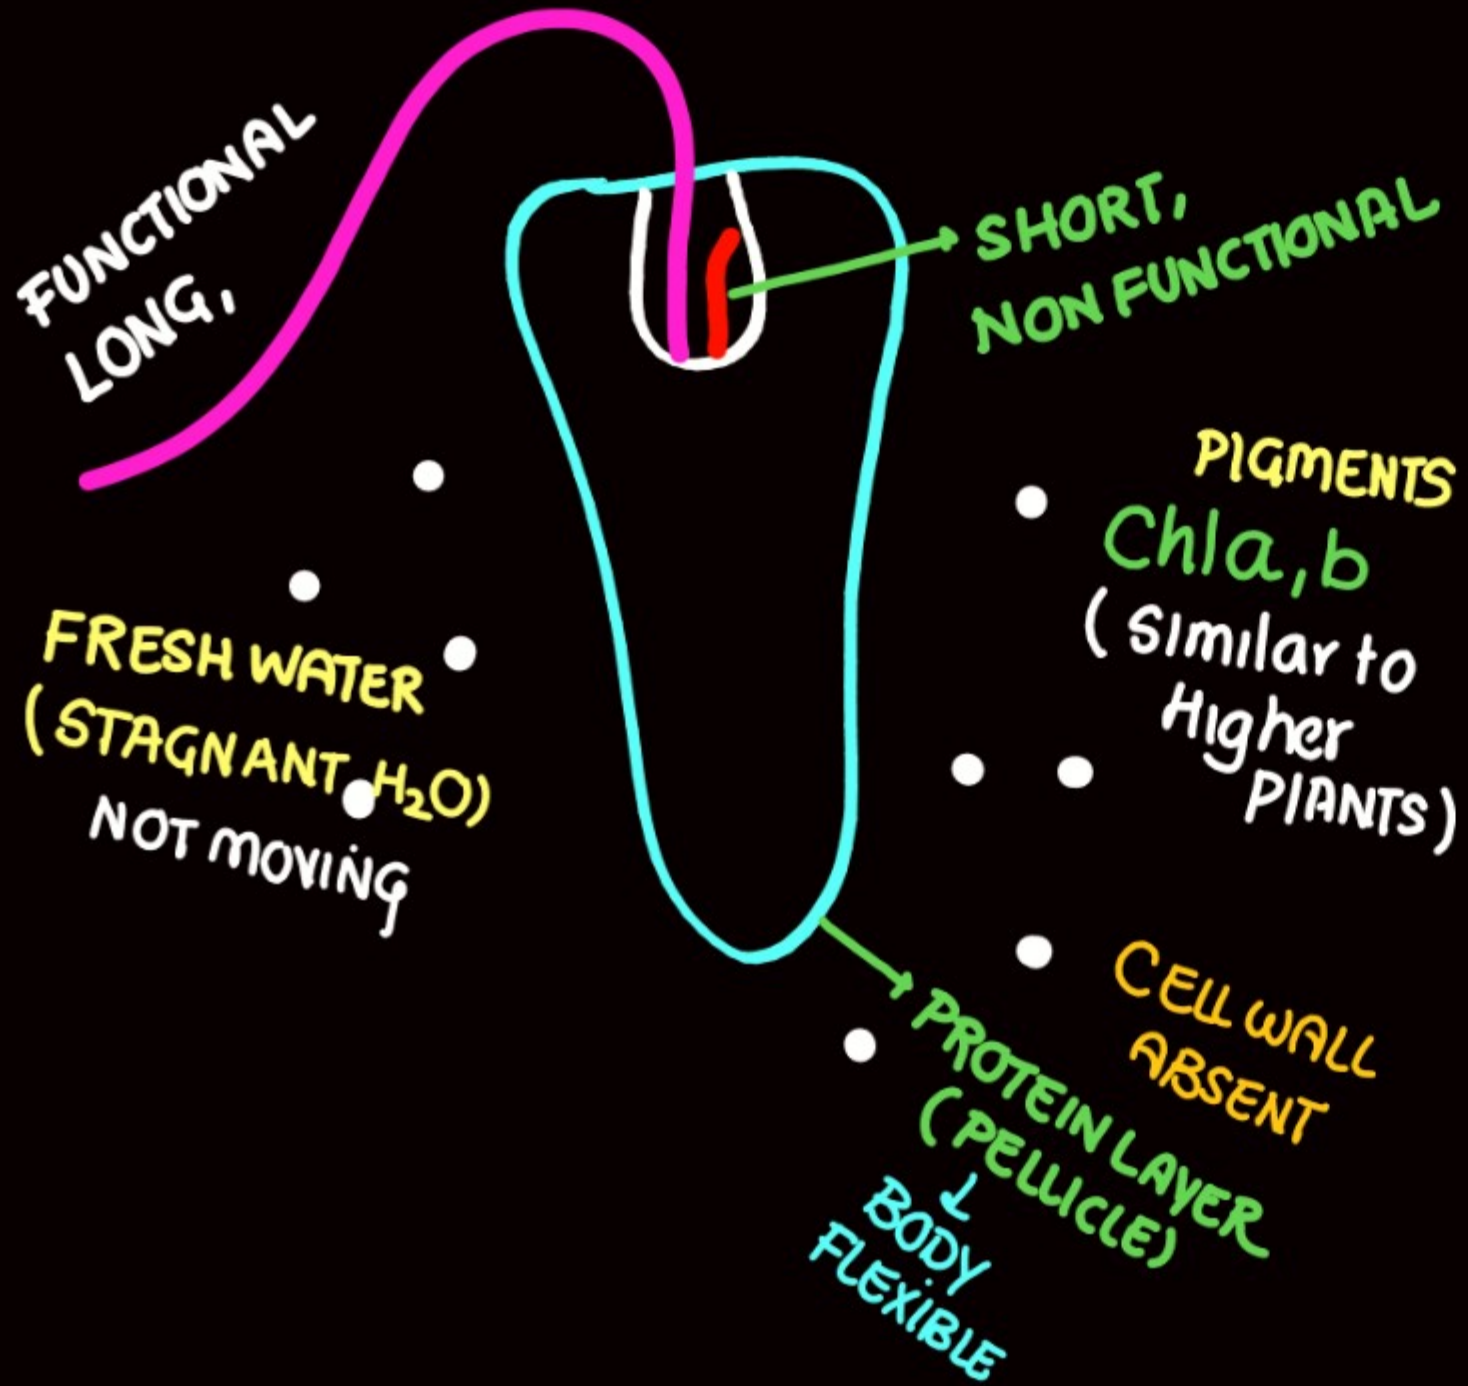 FUNCTIONAL
LONG,
SHORT,
NON FUNCTIONAL
PIGMENTS
Chla, b
(Similar to
Higher
PlANTS)
FRESH WATER
(STAGNANT H₂O)
NOT MOVING
CELL WALL
ABSENT
PROTEIN LAYER
(PELLICLE)
↓
BODY
FLEXIBLE